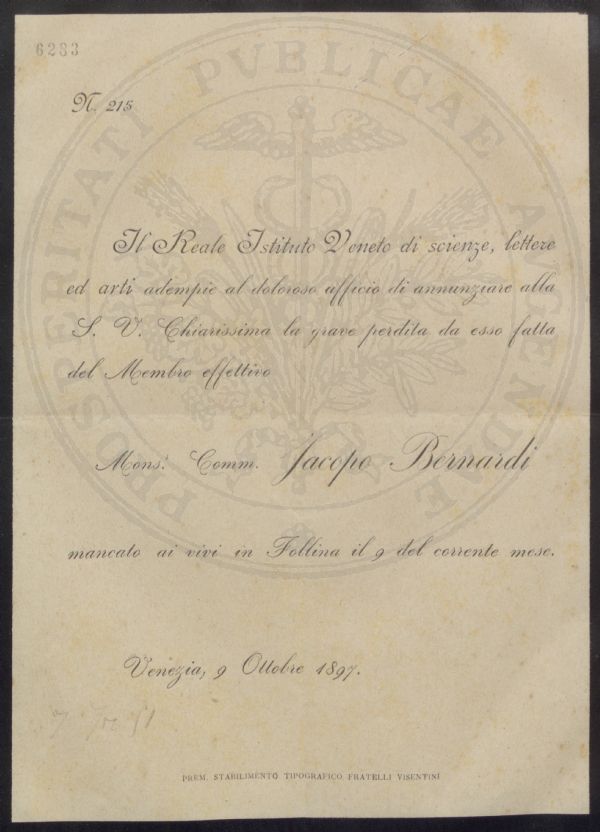 6283
N. 215
PROSPERITATI PVBLICAE AVGENDAE
Il Reale Istituto Veneto di scienze, lettere
ed arti adempie al doloroso ufficio di annunziare alla
S. V. Chiarissima la grave perdita da esso fatta
del Membro effettivo
Mons.r Comm. Jacopo Bernardi
mancato ai vivi in Follina il 9 del corrente mese.
Venezia, 9 Ottobre 1897.
PREM. STABILIMENTO TIPOGRAFICO FRATELLI VISENTINI